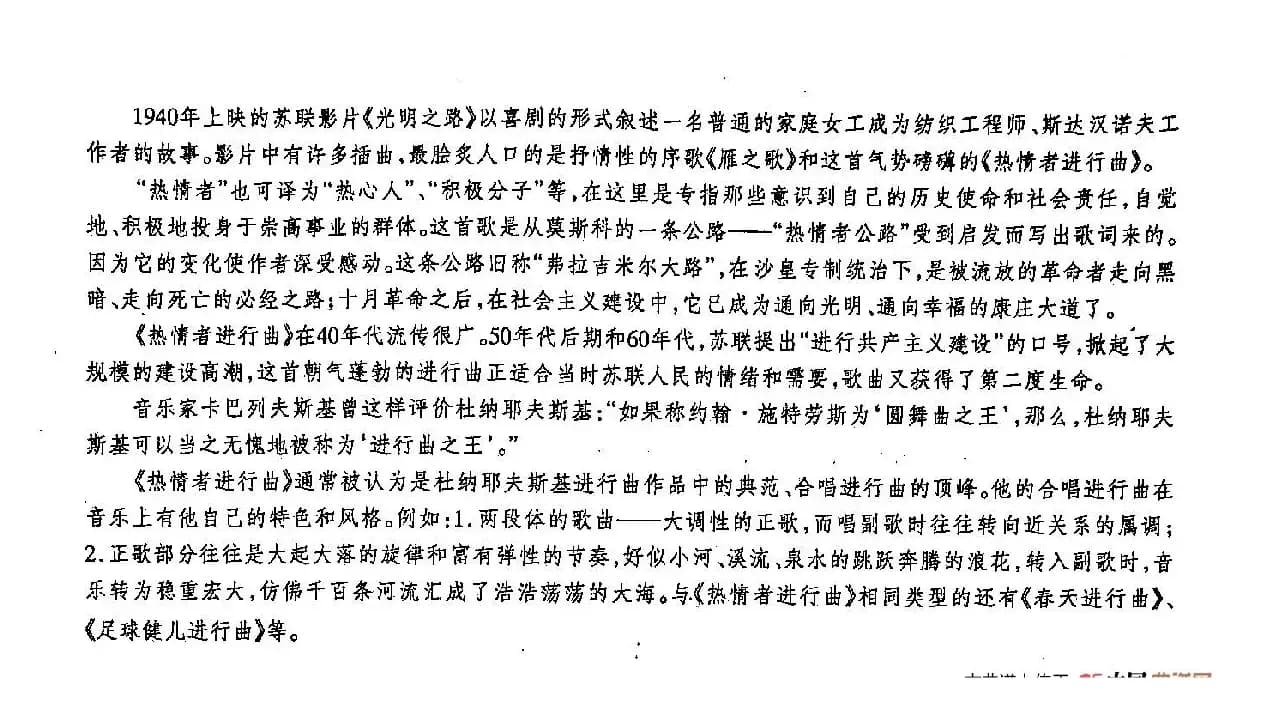 1940年上映的苏联影片《光明之路》以喜剧的形式叙述一名普通的家庭女工成为纺织工程师、斯达汉诺夫工
作者的故事。影片中有许多插曲,最脍炙人口的是抒情性的序歌《雁之歌》和这首气势磅礴的《热情者进行曲》。
“热情者”也可译为“热心人”、“积极分子”等,在这里是专指那些意识到自己的历史使命和社会责任,自觉
地、积极地投身于崇高事业的群体。这首歌是从莫斯科的一条公路——“热情者公路”受到启发而写出歌词来的。
因为它的变化使作者深受感动。这条公路旧称“弗拉吉米尔大路”,在沙皇专制统治下,是被流放的革命者走向黑
暗、走向死亡的必经之路;十月革命之后,在社会主义建设中,它已成为通向光明、通向幸福的康庄大道了。
《热情者进行曲》在40年代流传很广。50年代后期和60年代,苏联提出“进行共产主义建设”的口号,掀起了大
规模的建设高潮,这首朝气蓬勃的进行曲正适合当时苏联人民的情绪和需要,歌曲又获得了第二度生命。
音乐家卡巴列夫斯基曾这样评价杜纳耶夫斯基:“如果称约翰·施特劳斯为‘圆舞曲之王’,那么,杜纳耶夫
斯基可以当之无愧地被称为‘进行曲之王’。”
《热情者进行曲》通常被认为是杜纳耶夫斯基进行曲作品中的典范、合唱进行曲的顶峰。他的合唱进行曲在
音乐上有他自己的特色和风格。例如:1.两段体的歌曲——大调性的正歌,而唱副歌时往往转向近关系的属调;
2.正歌部分往往是大起大落的旋律和富有弹性的节奏,好似小河、溪流、泉水的跳跃奔腾的浪花,转入副歌时,音
乐转为稳重宏大,仿佛千百条河流汇成了浩浩荡荡的大海。与《热情者进行曲》相同类型的还有《春天进行曲》、
《足球健儿进行曲》等。